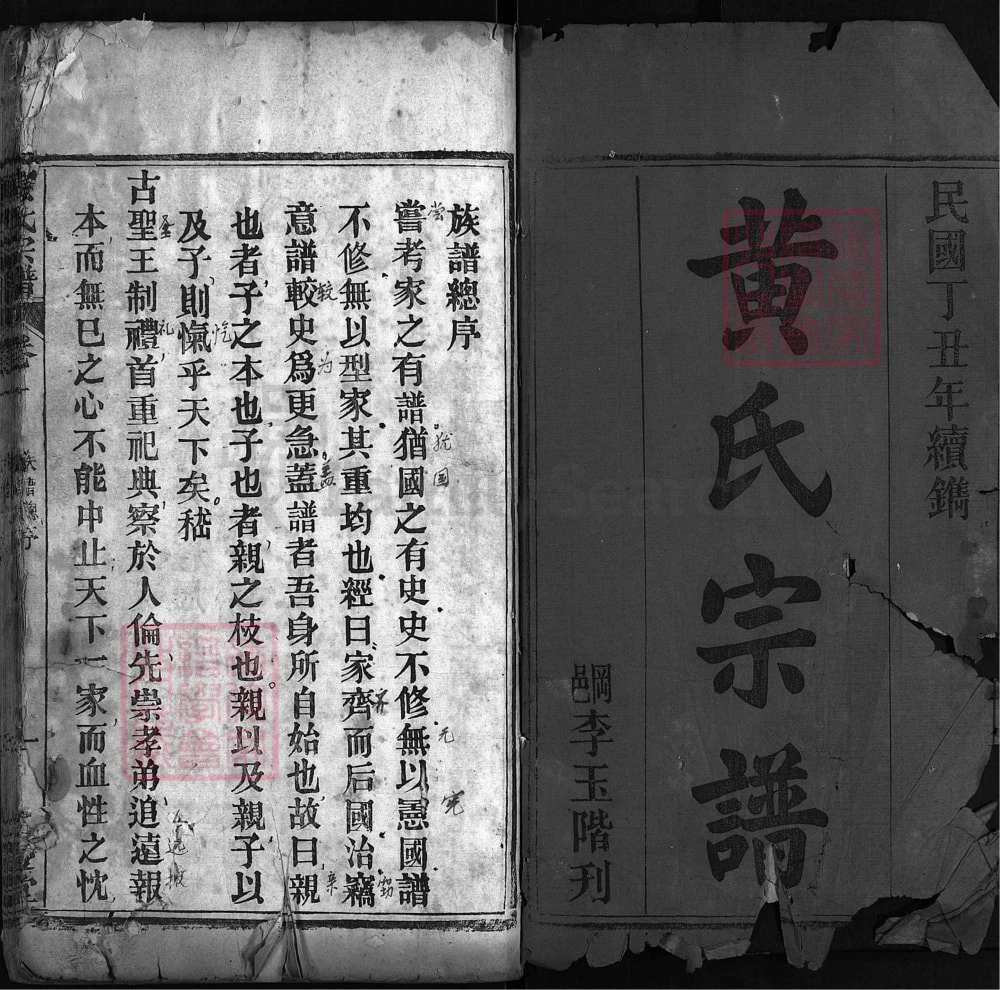 民國丁丑年續鐫
黃氏宗譜
綱邑李玉階刋
族譜總序
嘗考家之有譜猶國之有史史不修無以憲國譜
不修無以型家其重均也經曰家齊而后國治竊
意譜較史爲更急蓋譜者吾身所自始也故曰親
也者子之本也子也者親之枝也親以及親子以
及子則愾乎天下矣嵇
古聖王制禮首重祀典察於人倫先崇孝弟追遠報
本而無已之心不能中止天下一家而血性之忱